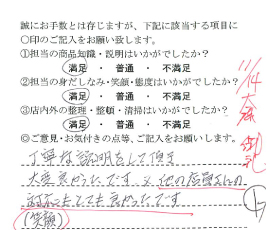 誠にお手数とは存じますが、下記に該当する項目に
〇印のご記入をお願い致します。
①担当の商品知識・説明はいかがでしたか?
満足 ・ 普通 ・ 不満足
②担当の身だしなみ・笑顔・態度はいかがでしたか?
満足 ・ 普通 ・ 不満足
③店内外の整理・整頓・清掃はいかがでしたか?
満足 ・ 普通 ・ 不満足
◎ご意見・お気付きの点等、ご記入をお願いします。
丁寧な説明をして頂き
大変良かったです。又他の店員さんの
対応もとても良かったです
(笑顔)
11/14